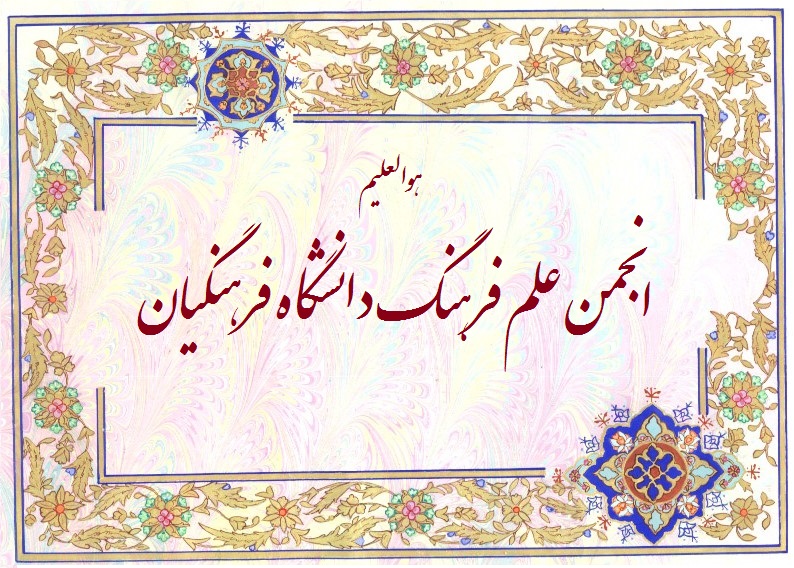 هوالعلیم
انجمن علم فرهنگ دانشگاه فرهنگیان